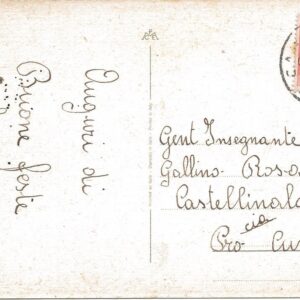 Auguri di
Buone feste
Gent Insegnante
Gallino Rosa
Castellinald
cia
Pro Cu